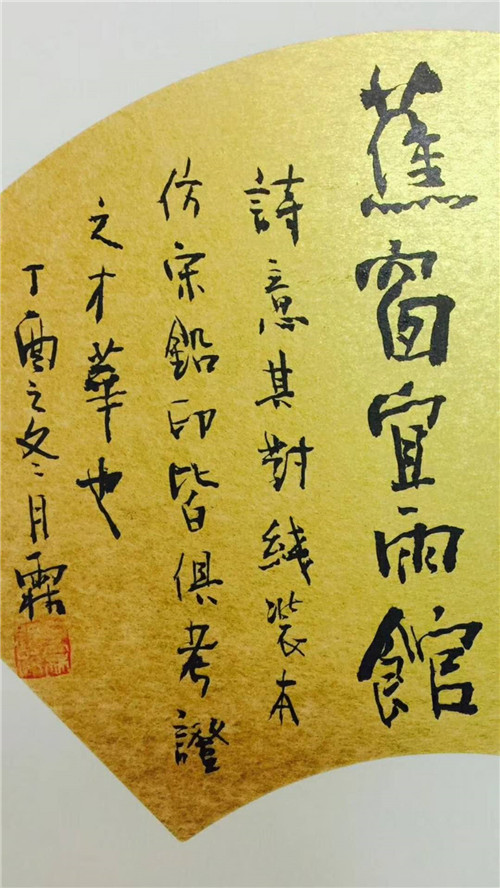 蕉窗宜雨館
詩意其對綫裝本
仿宋鉛印皆俱考證
之才華也
丁酉之冬月霖